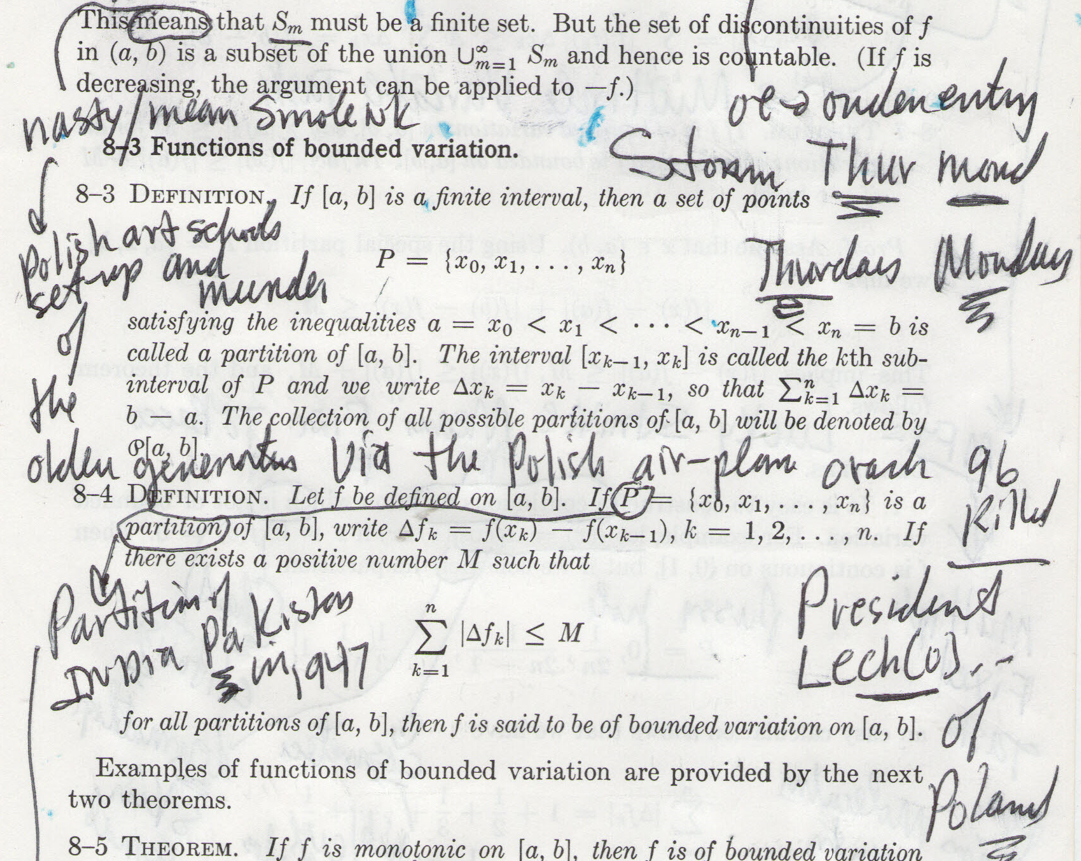 This means that S_m must be a finite set. But the set of discontinuities of f
in (a, b) is a subset of the union ∪_{m=1}^∞ S_m and hence is countable. (If f is
decreasing, the argument can be applied to −f.)
nasty mean
entry
8–3 Functions of bounded variation.
Storm Thur mond
8–3 DEFINITION. If [a, b] is a finite interval, then a set of points
Polish art schools
P = {x_0, x_1, . . . , x_n}
Mondays
set-up and
satisfying the inequalities a = x_0 < x_1 < · · · < x_{n−1} < x_n = b is
of
called a partition of [a, b]. The interval [x_{k−1}, x_k] is called the kth sub-
interval of P and we write Δx_k = x_k − x_{k−1}, so that ∑_{k=1}^n Δx_k =
the
b − a. The collection of all possible partitions of [a, b] will be denoted by
𝒫[a, b].
via the Polish air-plane 96
killed
8–4 DEFINITION. Let f be defined on [a, b]. If P = {x_0, x_1, . . . , x_n} is a
partition of [a, b], write Δf_k = f(x_k) − f(x_{k−1}), k = 1, 2, . . , n. If
there exists a positive number M such that
Partition of
Pakistan
India
in 1947
∑_{k=1}^n |Δf_k| ≤ M
President
Lech
of
Poland
for all partitions of [a, b], then f is said to be of bounded variation on [a, b].
Examples of functions of bounded variation are provided by the next
two theorems.
8–5 THEOREM. If f is monotonic on [a, b], then f is of bounded variation